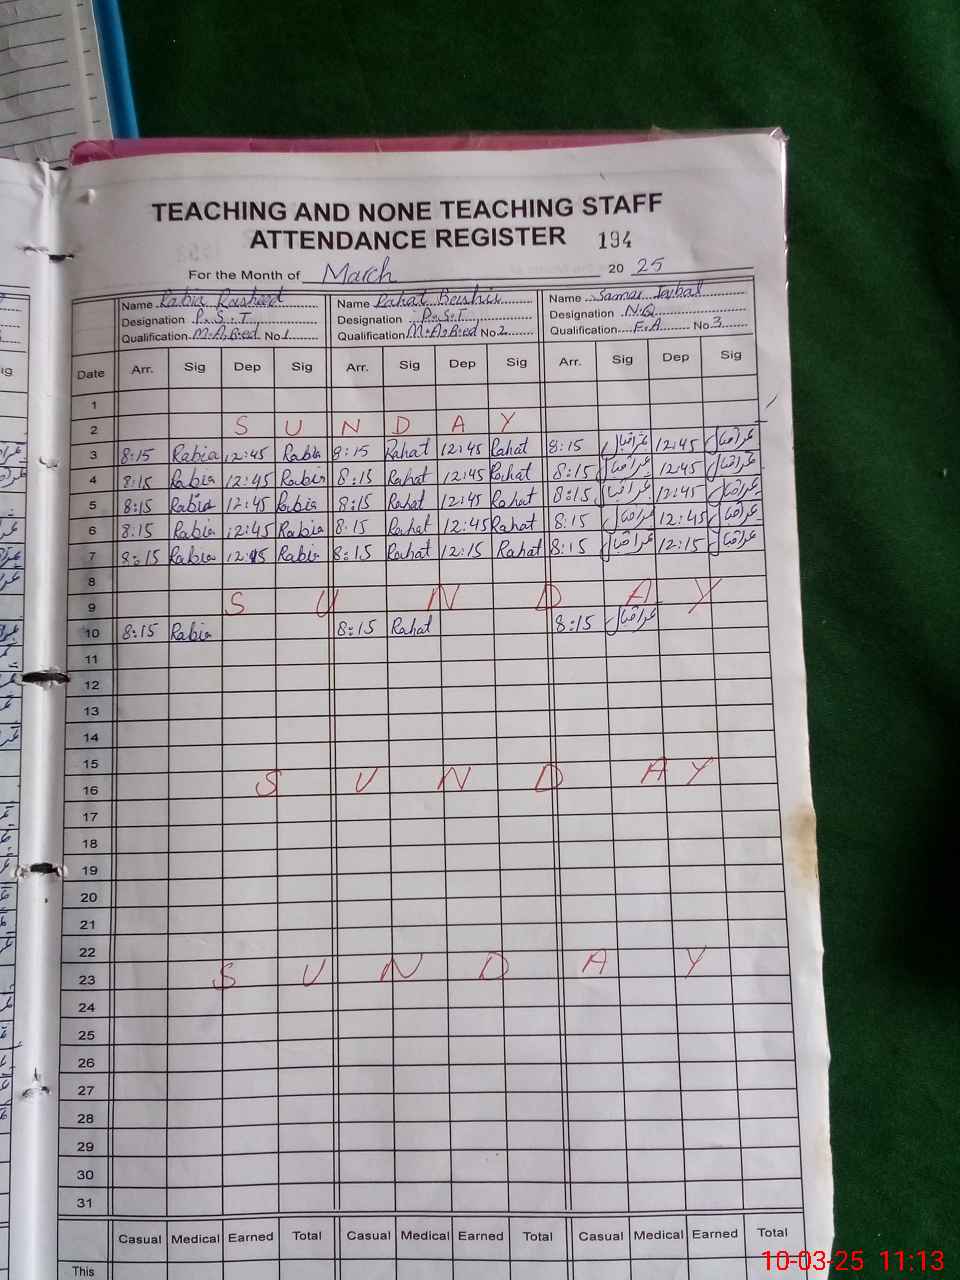 TEACHING AND NONE TEACHING STAFF
ATTENDANCE REGISTER 194
For the Month of March 20 25
Name Rabia Rasheed Name Rahat Bashir Name Samar Iqbal
Designation P.S.T Designation P.S.T Designation N.Q
Qualification M.A,B.ed No 1 Qualification M.A,B.ed No 2 Qualification F.A No 3
Date Arr. Sig Dep Sig Arr. Sig Dep Sig Arr. Sig Dep Sig
1
2 S U N D A Y
3 8:15 Rabia 12:45 Rabia 8:15 Rahat 12:45 Rahat 8:15 12:45
4 8:15 Rabia 12:45 Rabia 8:15 Rahat 12:45 Rahat 8:15 12:45
5 8:15 Rabia 12:45 Rabia 8:15 Rahat 12:45 Rahat 8:15 12:45
6 8:15 Rabia 12:45 Rabia 8:15 Rahat 12:45 Rahat 8:15 12:45
7 8:15 Rabia Rabia 8:15 Rahat 12:15 Rahat 8:15 12:15
8
9 S U N D A Y
10 8:15 Rabia 8:15 Rahat 8:15
11
12
13
14
15
16 S U N D A Y
17
18
19
20
21
22
23 S U N D A Y
24
25
26
27
28
29
30
31
Casual Medical Earned Total Casual Medical Earned Total Casual Medical Earned Total
This
10-03-25 11:13